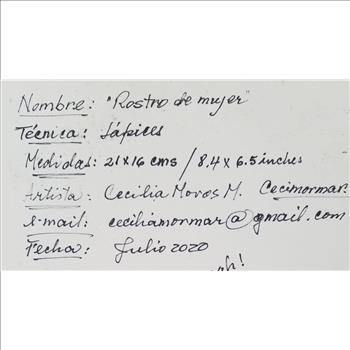 Nombre: "Rostro de mujer"
Técnica: Lápices
Medidas: 21x16 cms / 8.4 x 6.5 inches
Artista: Cecilia Moros M. Cecimormar.
e-mail: ceciliamormar@gmail.com
Fecha: Julio 2020